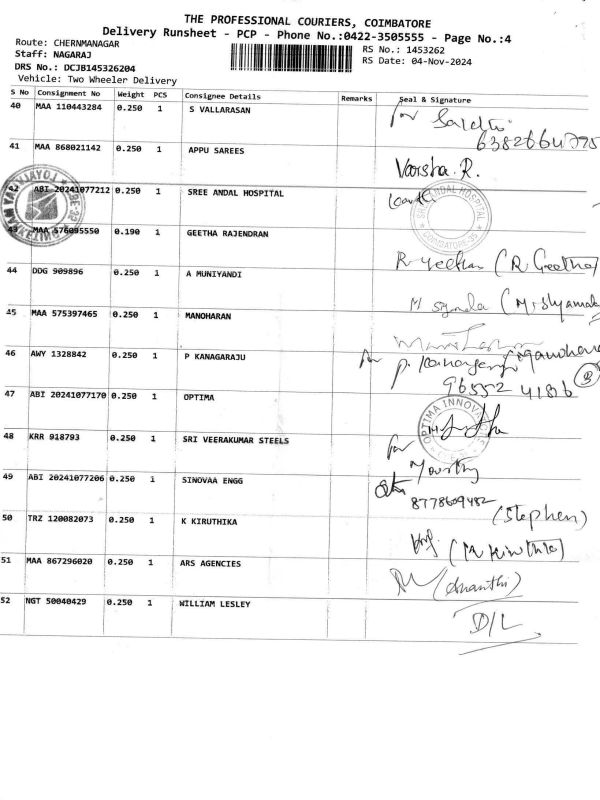 THE PROFESSIONAL COURIERS, COIMBATORE
Delivery Runsheet - PCP - Phone No.:0422-3505555 - Page No.:4
Route: CHERNMANAGAR
Staff: NAGARAJ
DRS No.: DCJB145326204
Vehicle: Two Wheeler Delivery
RS No.: 1453262
RS Date: 04-Nov-2024
S No Consignment No Weight PCS Consignee Details Remarks Seal & Signature
40 MAA 110443284 0.250 1 S VALLARASAN for
41 MAA 868021142 0.250 1 APPU SAREES Varsha. R.
42 ABI 20241077212 0.250 1 SREE ANDAL HOSPITAL
ANDAL HOSPITAL
COIMBATORE-35
43 MAA 576095550 0.190 1 GEETHA RAJENDRAN (R. Geetha)
44 DDG 909896 0.250 1 A MUNIYANDI (M. Shyamala
45 MAA 575397465 0.250 1 MANOHARAN
46 AWY 1328842 0.250 1 P KANAGARAJU for P. Kanagaraj
96552 41816
47 ABI 20241077170 0.250 1 OPTIMA
OPTIMA INNOVA
48 KRR 918793 0.250 1 SRI VEERAKUMAR STEELS for
49 ABI 20241077206 0.250 1 SINOVAA ENGG
8778609482
(Stephen)
50 TRZ 120082073 0.250 1 K KIRUTHIKA
51 MAA 867296020 0.250 1 ARS AGENCIES (Ananthi)
52 NGT 50040429 0.250 1 WILLIAM LESLEY D/L